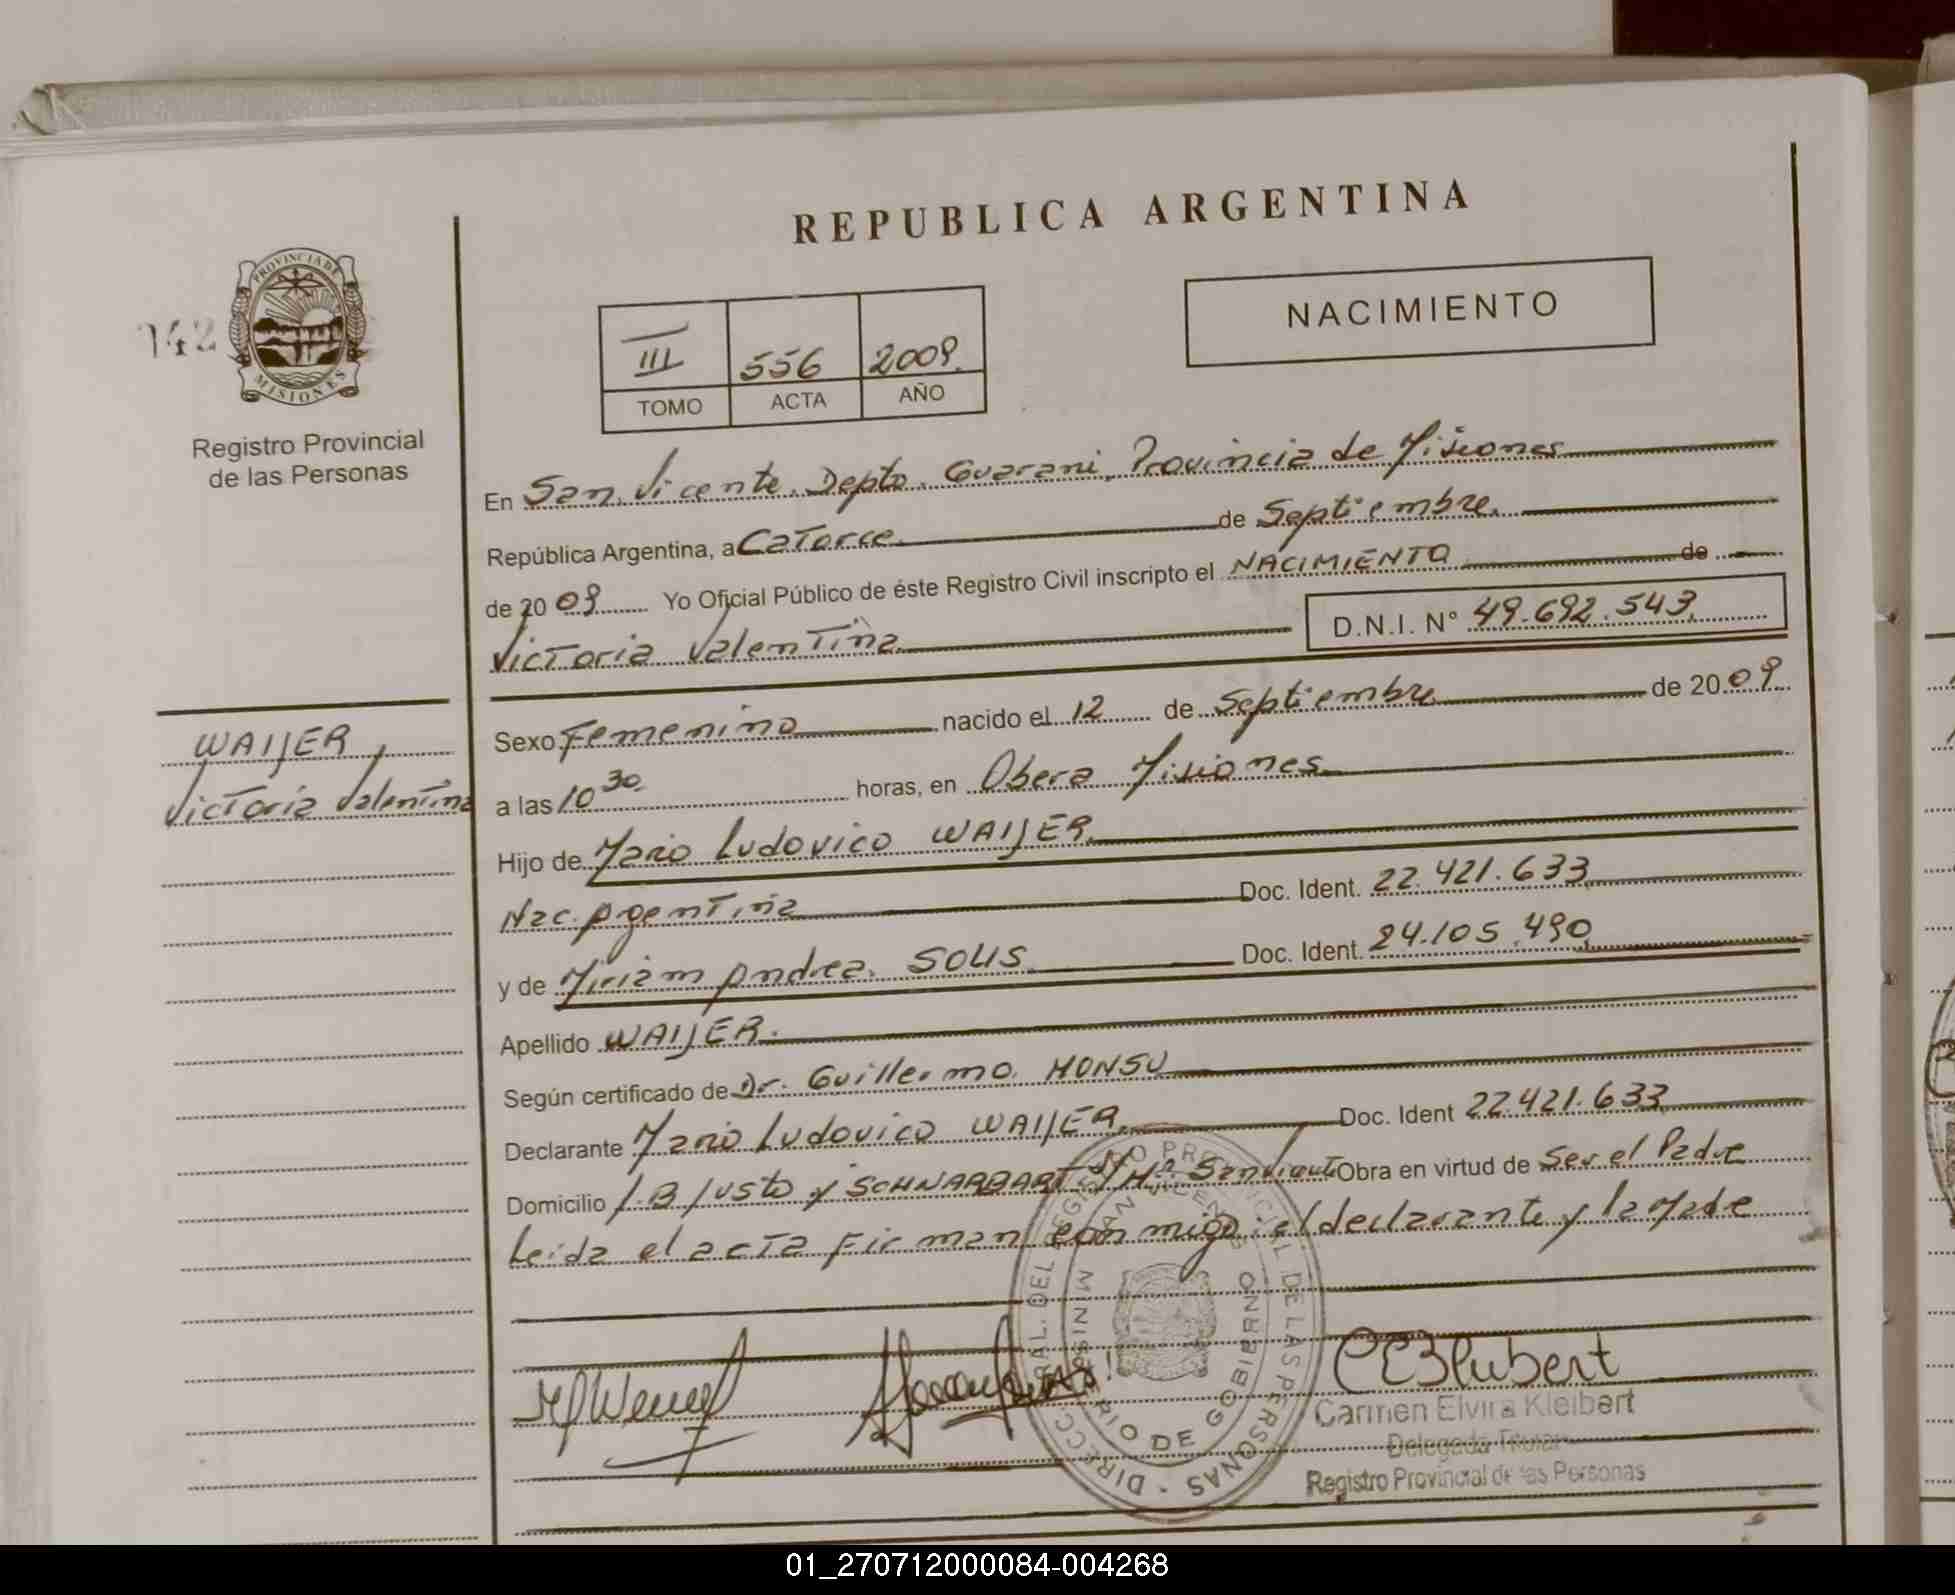 REPUBLICA ARGENTINA
NACIMIENTO
PROVINCIA DE
MISIONES
142
Registro Provincial
de las Personas
III 556 2009.
TOMO ACTA AÑO
En San Vicente. Depto. Guarani, Provincia de Misiones
República Argentina, a Catorce. de Septiembre.
de 20 09 Yo Oficial Público de éste Registro Civil inscripto el NACIMIENTO de
Victoria Valentina D.N.I. N° 49.692.543
Sexo Femenino nacido el 12 de Septiembre de 20 09
a las 10 30. horas, en Obera Misiones.
Hijo de Mario Ludovico WAIJER.
Nac. Argentina Doc. Ident. 22.421.633
y de Miriam Andrea. SOLIS Doc. Ident. 24.105.490
Apellido WAIJER.
Según certificado de Dr. Guillermo MONSU
Declarante Mario Ludovico WAIJER. Doc. Ident 22.421.633
Domicilio J.B Justo y SCHNARBART Obra en virtud de Ser el Padre
Leida el acta Firman con migo: el declarante y la Madre
WAIJER,
Victoria Valentina
DIRECC. GRAL. DEL REGISTRO PROVINCIAL DE LAS PERSONAS
MINISTERIO DE GOBIERNO
SAN VICENTE
Carmen Elvira Kleibert
Delegada Titular
Registro Provincial de las Personas
01_270712000084-004268